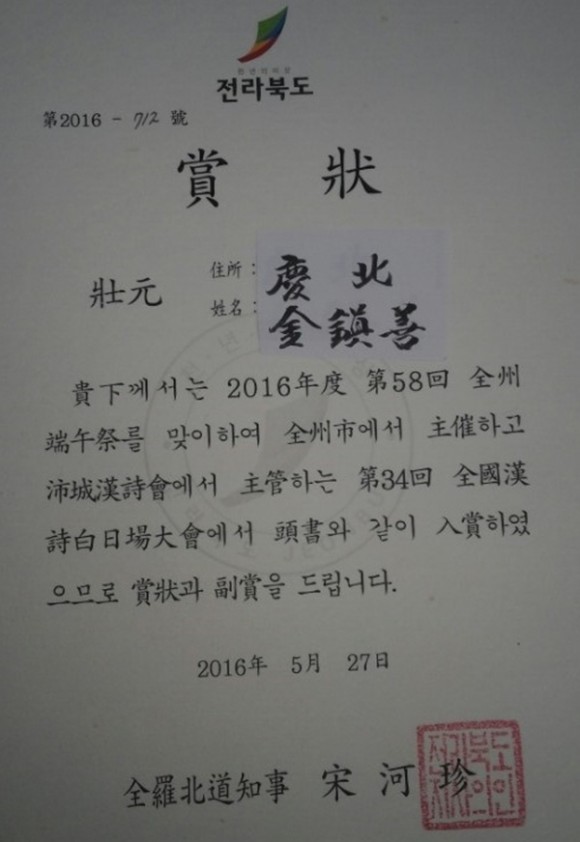 전라북도
第2016 - 712 號
賞 狀
壯元
住所 : 慶北
姓名 : 金鎭善
貴下께서는 2016年度 第58回 全州
端午祭를 맞이하여 全州市에서 主催하고
沛城漢詩會에서 主管하는 第34回 全國漢
詩白日場大會에서 頭書와 같이 入賞하였
으므로 賞狀과 副賞을 드립니다.
2016年 5月 27日
全羅北道知事 宋河珍
전라북도
지사의인